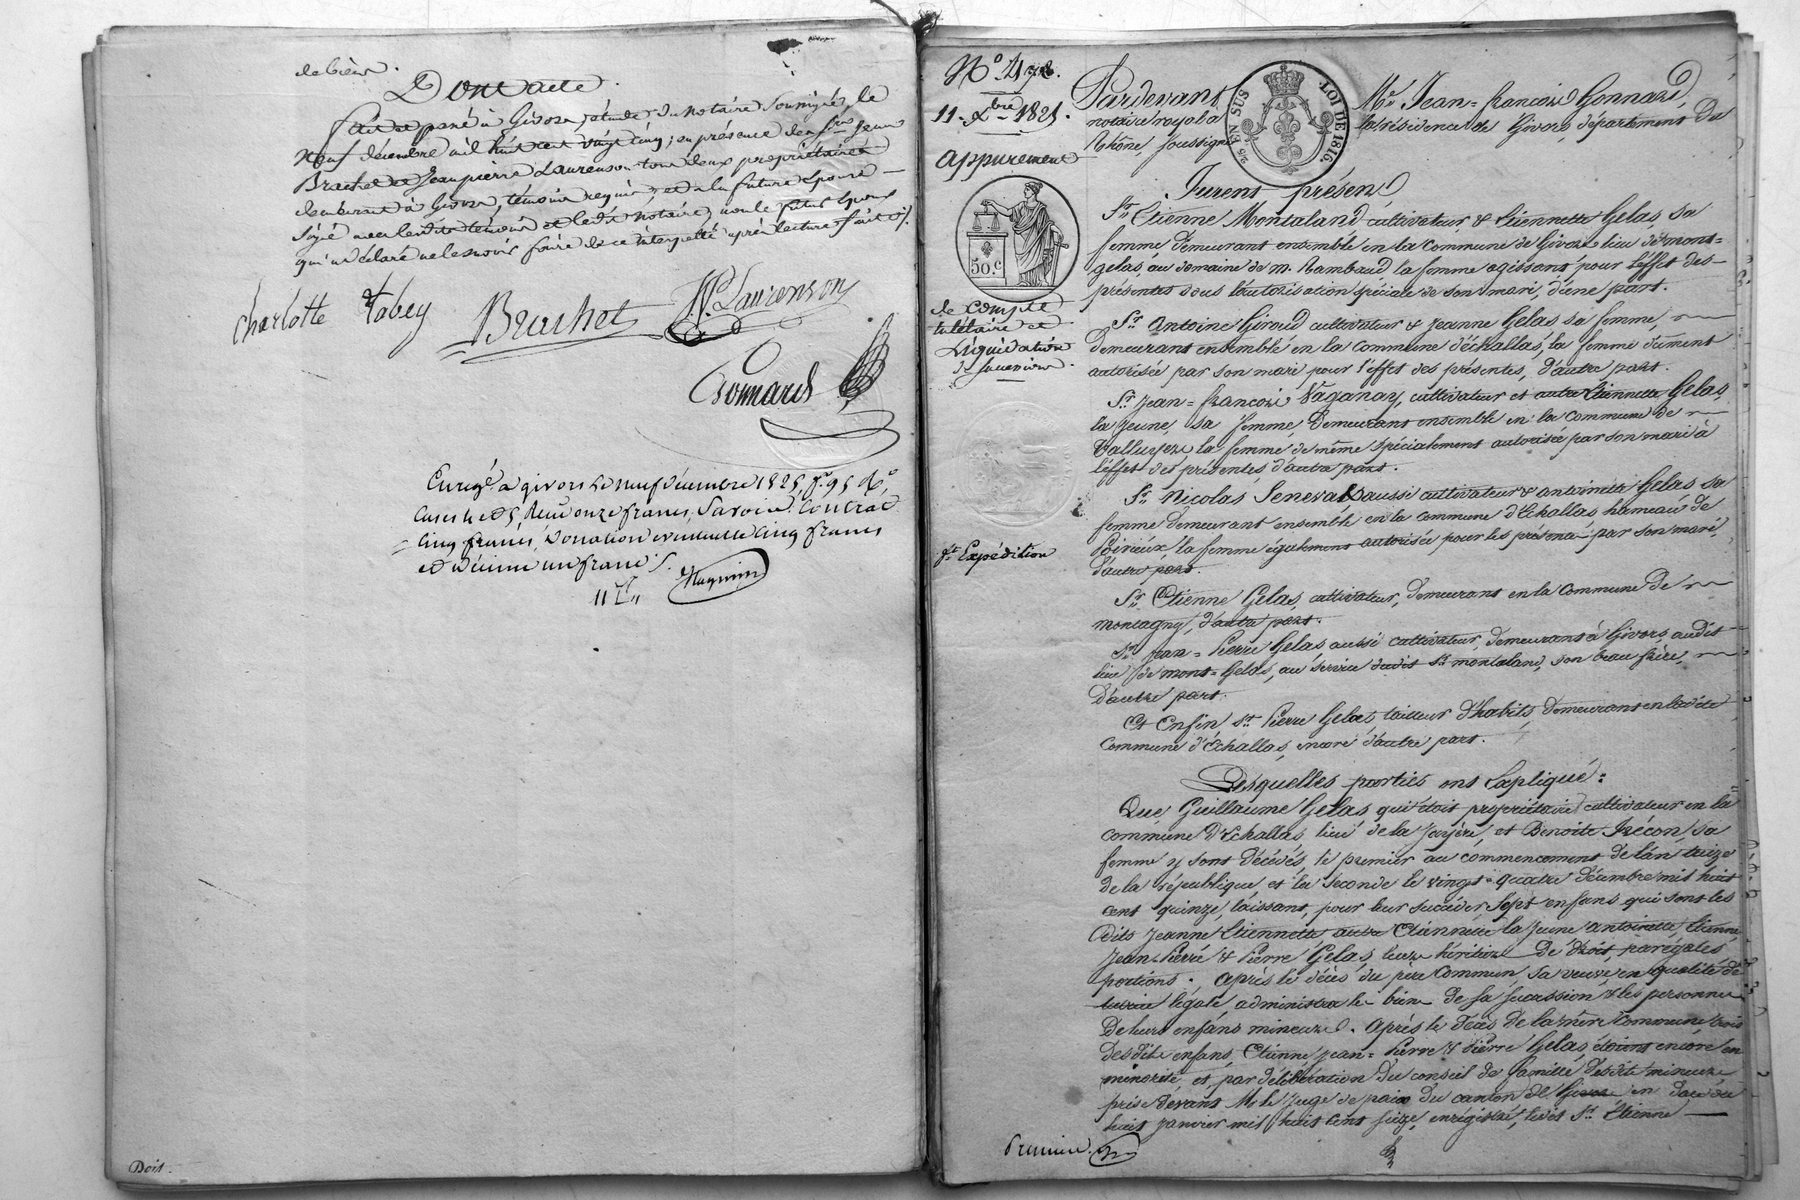 de bien.
Dont acte.
fait et passé à Givors, étude du notaire soussigné, le
neuf décembre mil huit cent vingt cinq, en présence de srs Jean
Brachet et Jean pierre Laurenson tous deux propriétaires
demeurant à Givors, témoins requis, et a la future épouse
signé avec lesdits témoins et ledit notaire, non le futur époux
qui a déclaré ne le savoir faire de ce interpellé après lecture faite
charlotte tabey Brachet JP Laurenson
Gonnard
Enregé a givors le neuf décembre 1825, f° 95 R°,
cases 4 et 5, Reçu onze francs, Savoir: Contrat
cinq francs, Donation eventuelle cinq francs
et décime un franc
11 f
Dois.
N° 478.
11 Xbre 1825.
appurement
50.c
de Compte
tutélaire et
Liquidation
de succession.
fte Expédition
25 EN SUS
LOI DE 1816
Pardevant Me Jean-françois Gonnard,
notaire royal à la résidence de Givors, département du
Rhône, soussigné
Furent présens,
Sr Etienne Montaland, cultivateur, & Etiennette Gelas, sa
femme, demeurant ensemble en la commune de Givors lieu de mont=
gelas, au domaine de m. Rambaud, la femme agissant pour l'effet des
présentes sous l'autorisation spéciale de son mari, d'une part.
Sr Antoine Giroud cultivateur & Jeanne Gelas sa femme,
demeurant ensemble en la commune d'échallas, la femme dûment
autorisée par son mari pour l'effet des présentes, d'autre part.
Sr Jean=françois Vaganay, cultivateur et autre Etiennette Gelas,
la jeune, sa femme, demeurant ensemble en la commune de
la femme de même spécialement autorisée par son mari à
l'effet des présentes, d'autre part.
Sr Nicolas Seneval aussi cultivateur & antoinette Gelas sa
femme demeurant ensemble en la commune d'Echallas hameau de
la femme également autorisée pour les présentes par son mari,
d'autre part.
Sr Etienne Gelas, cultivateur, demeurant en la commune de
montagny, d'autre part.
Sr Jean=Pierre Gelas, aussi cultivateur, demeurant à Givors, audit
lieu de mont=Gelas, au service dudit Sr montaland, son beau frère,
d'autre part.
Et Enfin Sr Pierre Gelas, tailleur d'habits, demeurant en ladite
Commune d'Echallas, encore d'autre part.
Lesquelles parties ont Expliqué:
Que Guillaume Gelas qui étoit propriétaire cultivateur en la
commune d'Echallas, lieu de la et Benoite sa
femme y sont décédés, le premier au commencement de l'an treize
de la république, et la seconde le vingt=quatre décembre mil huit
cent quinze, laissant, pour leur succéder sept enfans qui sont les
dits Jeanne Etiennette autre Etiennette la jeune antoinette, Etienne,
Jean-Pierre & Pierre Gelas, leurs héritiers de droit par égales
portions; Après le décès du père commun, sa veuve en qualité de
tutrice légale, administra les biens de sa succession & les personnes
de leurs enfans mineurs. Après le décès de la mère commune, trois
desdits enfans, Etienne, Jean=Pierre & Pierre Gelas, étoient encore en
minorité, et par délibération du conseil de famille desdits mineurs
prise devant Mr le Juge de paix du canton de Givors en date du
huit janvier mil huit cent seize, enregistrée, ledit Sr Etienne
Premier.